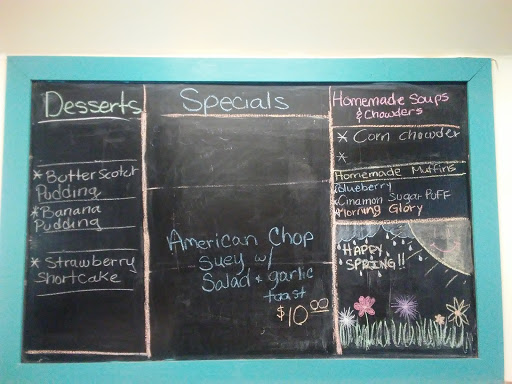 Desserts
* Butterscotch
Pudding
* Banana
Pudding
* Strawberry
Shortcake
Specials
American Chop
Suey w/
Salad + garlic
toast
$10.00
Homemade Soups
& Chowders
* Corn chowder
*
Homemade Muffins
Blueberry
Cinnamon Sugar Puff
Morning Glory
HAPPY
SPRING!!